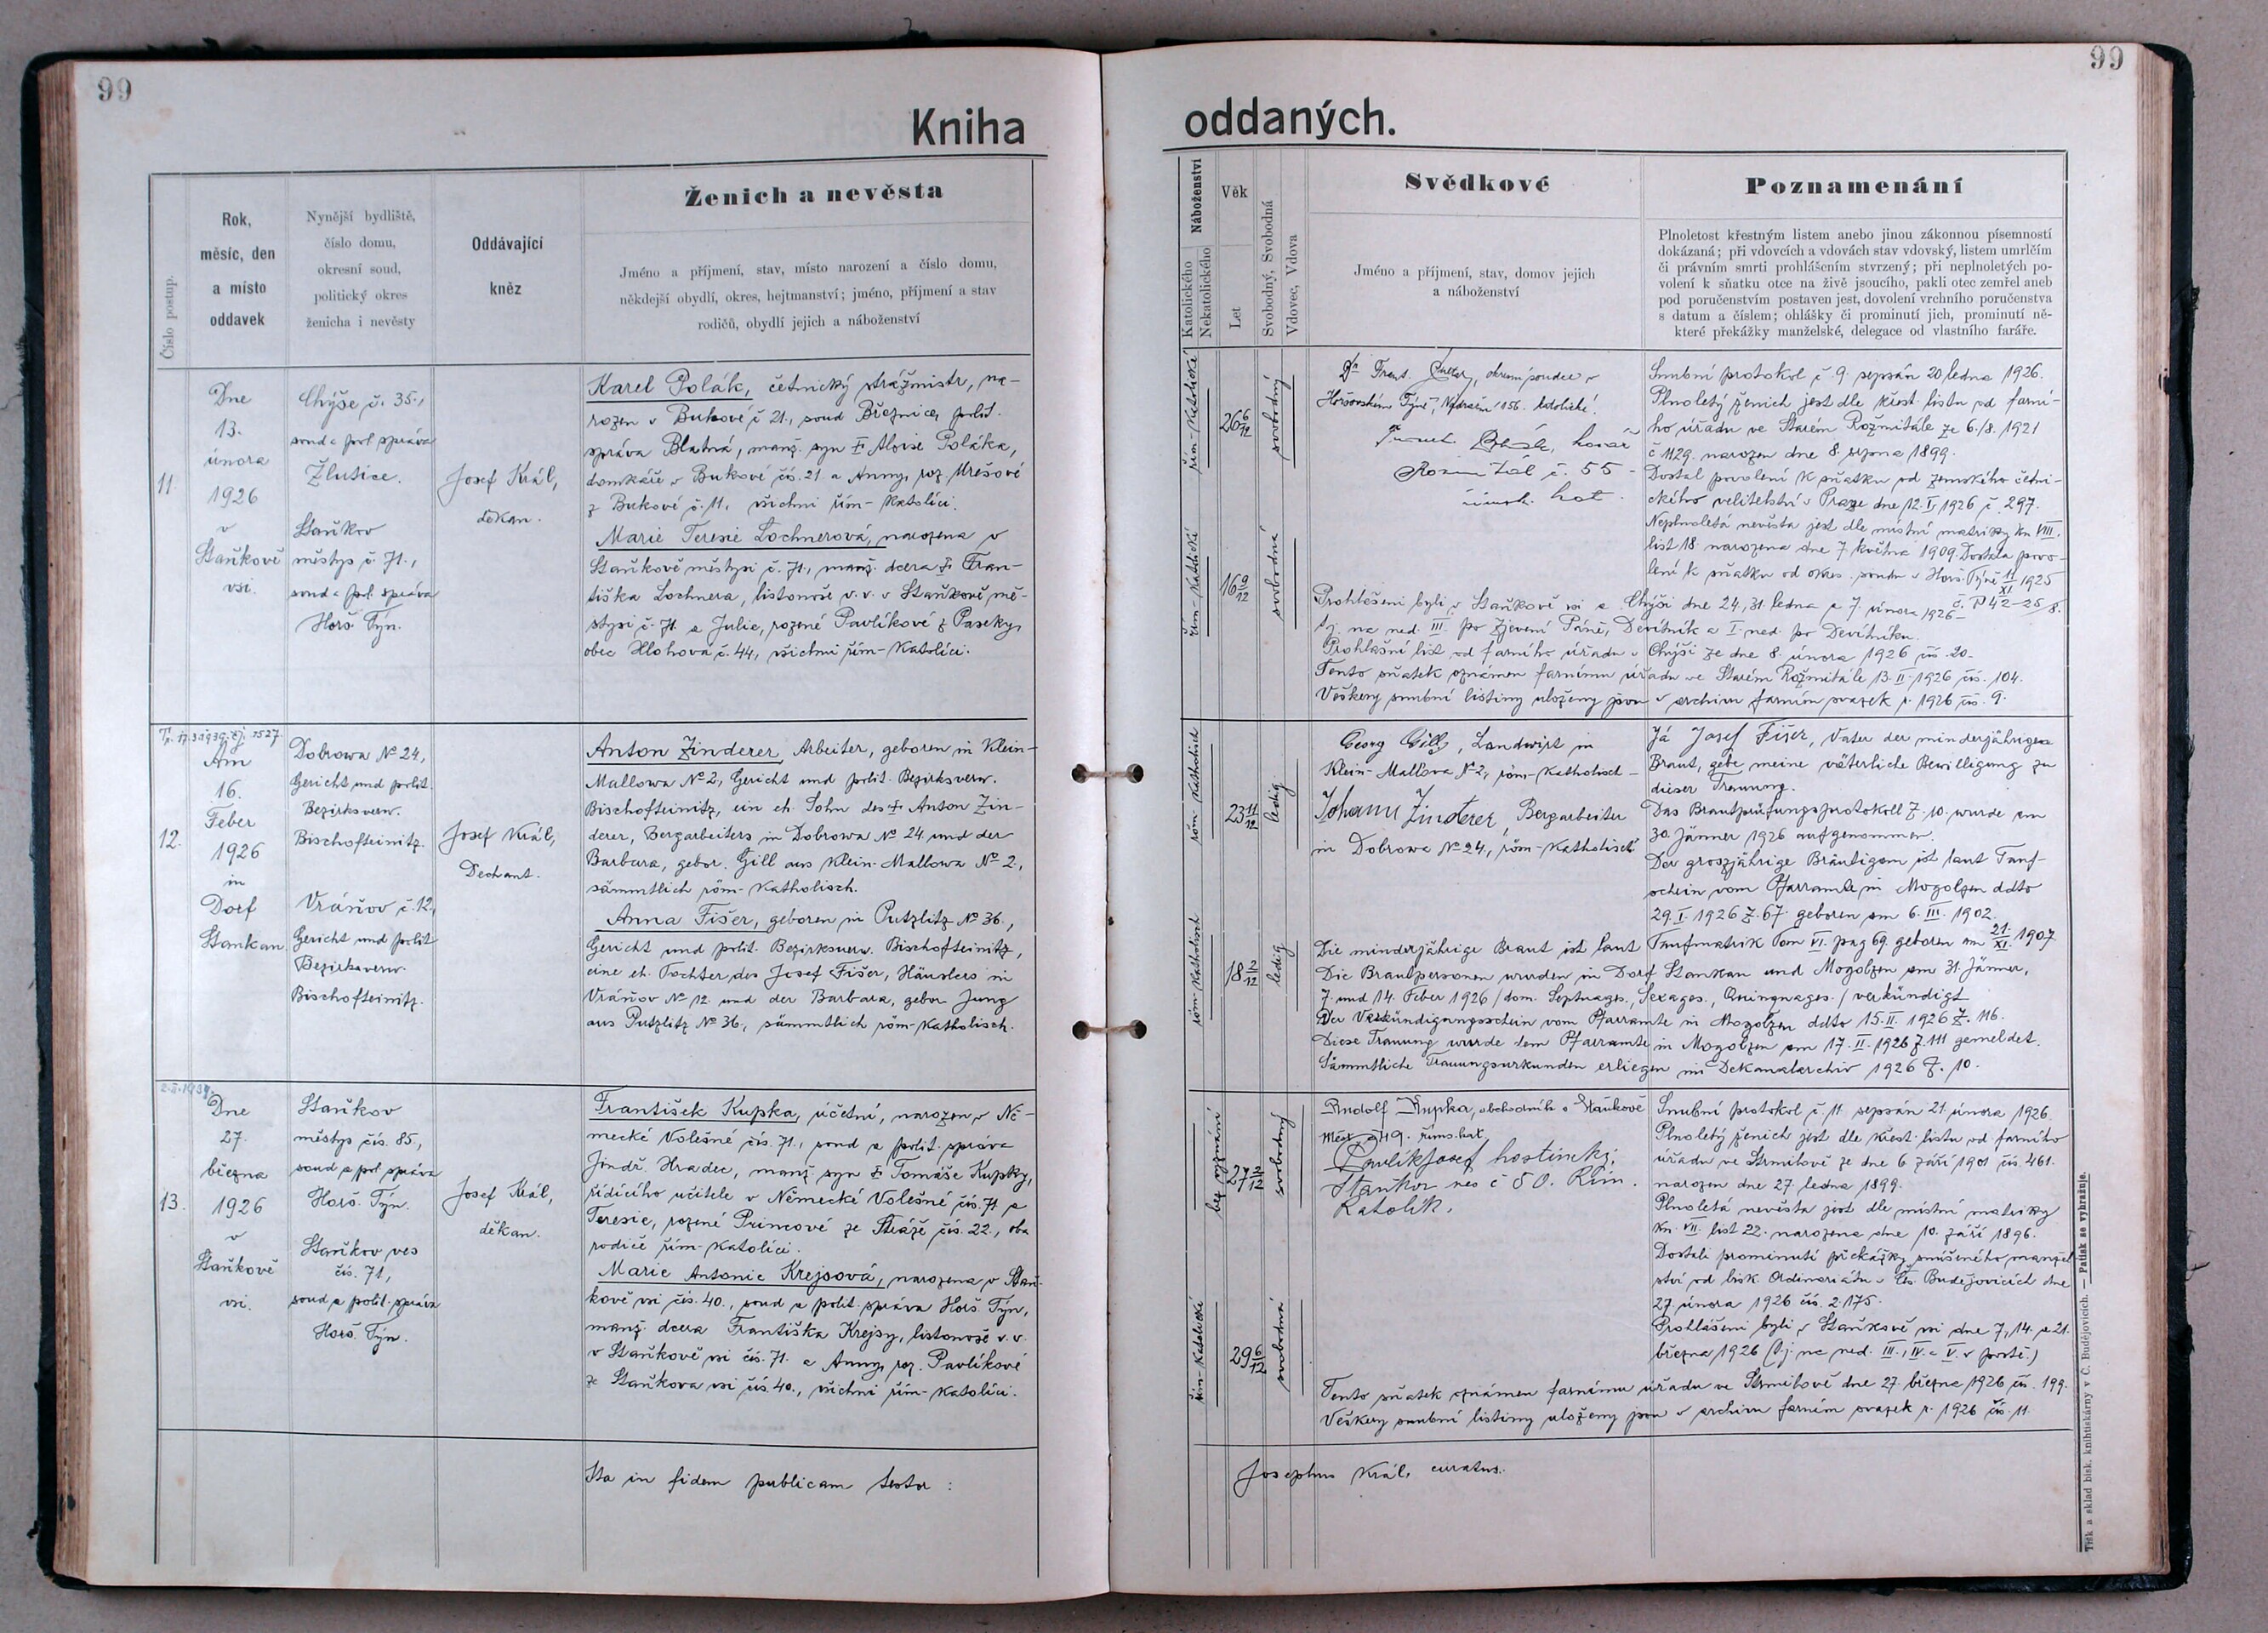 99
99
Kniha
oddaných.
Číslo postup.
Rok,
měsíc, den
a místo
oddavek
Nynější bydliště,
číslo domu,
okresní soud,
politický okres
ženicha i nevěsty
Oddávající
kněz
Ženich a nevěsta
Jméno a příjmení, stav, místo narození a číslo domu,
někdejší obydlí, okres, hejtmanství; jméno, příjmení a stav
rodičů, obydlí jejich a náboženství
Náboženství
Katolického
Nekatolického
Věk
Let
Svobodný, Svobodná
Vdovec, Vdova
Svědkové
Jméno a příjmení, stav, domov jejich
a náboženství
Poznamenání
Plnoletost křestným listem anebo jinou zákonnou písemností
dokázaná; při vdovcích a vdovách stav vdovský, listem umrlčím
či právním smrti prohlášením stvrzený; při neplnoletých po-
volení k sňatku otce na živě jsoucího, pakli otec zemřel aneb
pod poručenstvím postaven jest, dovolení vrchního poručenstva
s datum a číslem; ohlášky či prominutí jich, prominutí ně-
které překážky manželské, delegace od vlastního faráře.
11.
Dne
13.
února
1926
v
Staňkově
vsi.
Chýše č. 35.,
soud a pol. správa
Žlutice.
Staňkov
městys č. 71.,
soud a pol. správa
Horš. Týn.
Josef Král,
děkan.
Karel Polák, četnický strážmistr, na-
rozen v Bukové č 21., soud Březnice, polit.
správa Blatná, manž. syn † Aloise Poláka,
domkáře v Bukové čís. 21. a Anny, roz. Mrešové
z Bukové č. 11., všichni řím-katolíci.
Marie Teresie Lochnerová, narozena v
Staňkově městysi č. 71., manž. dcera † Fran-
tiška Lochnera, listonoše v. v. v Staňkově mě-
stysi č. 71. a Julie, rozené Pavlíkové z Paseky,
obec Hlohová č. 44, všichni řím-katolíci.
řím-katolické
26 6/12
svobodný
řím-katolické
16 9/12
svobodná
Dr. Frant. okresní soudce v
Horšovském Týně, Nádražní 156. katolické.
kovář
č. 55
kat.
Snubní protokol č. 9. sepsán 20 ledna 1926.
Plnoletý ženich jest dle křest. listu od farní-
ho úřadu ve Starém Rožmitále ze 6./8. 1921
č 1129. narozen dne 8. srpna 1899.
Dostal povolení k sňatku od zemského četni-
ckého velitelství v Praze dne 12. I. 1926 č. 297.
Neplnoletá nevěsta jest dle místní matriky kn. VIII.
list 18. narozena dne 7. května 1909. Dostala povo-
lení k sňatku od okres. soudu v Horš. Týně 11/XI 1925
Prohlášeni byli v Staňkově vsi a Chýši dne 24., 31. ledna a 7. února 1926 - č. P 42-25/8.
tj. na ned. III. po Zjevení Páně, Devítník a I. ned. po Devítníku.
Prohlašní list od farního úřadu v Chýši ze dne 8. února 1926 čís. 20.
Tento sňatek oznámen farnímu úřadu ve Starém Rožmitále 13. II. 1926 čís. 104.
Veškery snubní listiny uloženy jsou v archivu farním svazek r. 1926 čís. 9.
12.
Am
16.
Feber
1926
in
Dorf
Stankau
Dobrowa No 24,
Gericht und polit.
Bezirksverw.
Bischofteinitz.
Vráňov č. 12.,
Gericht und polit.
Bezirksverw.
Bischofteinitz.
Josef Král,
Dechant.
Anton Zinderer, Arbeiter, geboren in Klein-
Mallowa No 2, Gericht und polit. Bezirksverw.
Bischofteinitz, ein eh. Sohn des † Anton Zin-
derer, Bergarbeiters in Dobrowa No 24 und der
Barbara, gebor. Gill aus Klein-Mallowa No 2,
sämmtlich röm-katholisch.
Anna Fišer, geboren in Putzlitz No 36.,
Gericht und polit. Bezirksverw. Bischofteinitz,
eine eh. Tochter des Josef Fišer, Häuslers in
Vráňov No 12. und der Barbara, gebor. Jung
aus Putzlitz No 36., sämmtlich röm-katholisch.
röm-katholisch
23 11/12
ledig
röm-katholisch
18 2/12
ledig
Georg Gill, Landwirt in
Klein-Mallova No 2, röm-katholisch
Johann Zinderer, Bergarbeiter
in Dobrowa No 24., röm-katholisch
Já Josef Fišer, Vater der minderjährigen
Braut, gebe meine väterliche Bewilligung zu
dieser Trauung.
Das Brautprüfungsprotokoll Z. 10. wurde am
30. Jänner 1926 aufgenommen.
Der groszjährige Bräutigam ist laut Tauf-
schein vom Pfarramte in Mogolzen ddto
29. I. 1926 Z. 67. geboren am 6. III. 1902.
Die minderjährige Braut ist laut Taufmatrik Tom VI. pag 69. geboren am 21./XI. 1907
Die Brautpersonen wurden in Dorf Stankau und Mogolzen am 31. Jänner,
7. und 14. Feber 1926 / dom. Septuages., Sexages., Quinquages. / verkündigt
Der Verkündigungsschein vom Pfarramte in Mogolzen ddto 15. II. 1926 Z. 116.
Diese Trauung wurde dem Pfarramte in Mogolzen am 17. II. 1926 Z. 111 gemeldet.
Sämmtliche Trauungsurkunden erliegen im Dekanalarchiv 1926 Z. 10.
13.
Dne
27.
března
1926
v
Staňkově
vsi.
Staňkov
městys čís. 85.,
soud a pol. správa
Horš. Týn.
Staňkov ves
čís. 71,
soud a polit. správa
Horš. Týn.
Josef Král,
děkan.
František Kupka, účetní, narozen v Ně-
mecké Volešné čís. 71., soud a polit. správa
Jindř. Hradec, manž. syn † Tomáše Kupky,
řídícího učitele v Německé Volešné čís. 71 a
Teresie, rozené Princové ze Stráže čís. 22., oba
rodiče řím-katolíci.
Marie Antonie Krejsová, narozena v Staň-
kově vsi čís. 40., soud a polit. správa Horš. Týn,
manž. dcera Františka Krejsy, listonoše v. v.
v Staňkově vsi čís. 71. a Anny, roz. Pavlíkové
ze Staňkova vsi čís. 40., všichni řím-katolíci.
bez vyznání
27 2/12
svobodný
řím-katolické
29 6/12
svobodná
Rudolf Kupka, obchodník v Staňkově
Pavlík Josef hostinský,
Staňkov ves č 50. Řím.
Katolík.
Snubní protokol č. 11 sepsán 21. února 1926.
Plnoletý ženich jest dle křest. listu od farního
úřadu ve Strmilově ze dne 6. září 1901 čís. 461.
narozen dne 27. ledna 1899.
Plnoletá nevěsta jest dle místní matriky
kn. VII. list 22. narozena dne 10. září 1896.
Dostali prominutí překážky smíšeného manžel
ství od bisk. Ordinariátu v Čes. Budějovicích dne
27. února 1926 čís. 2.175.
Prohlášeni byli v Staňkově vsi dne 7., 14. a 21.
března 1926 (tj. na ned. III., IV. a V. v postě.)
Tento sňatek oznámen farnímu úřadu ve Strmilově dne 27. března 1926 čís. 199.
Veškery snubní listiny uloženy jsou v archivu farním svazek r. 1926 čís. 11.
Ita in fidem publicam testor :
Josephus Král, curatus.
Tisk a sklad bisk. knihtiskárny v Č. Budějovicích. — Patisk se vyhražuje.